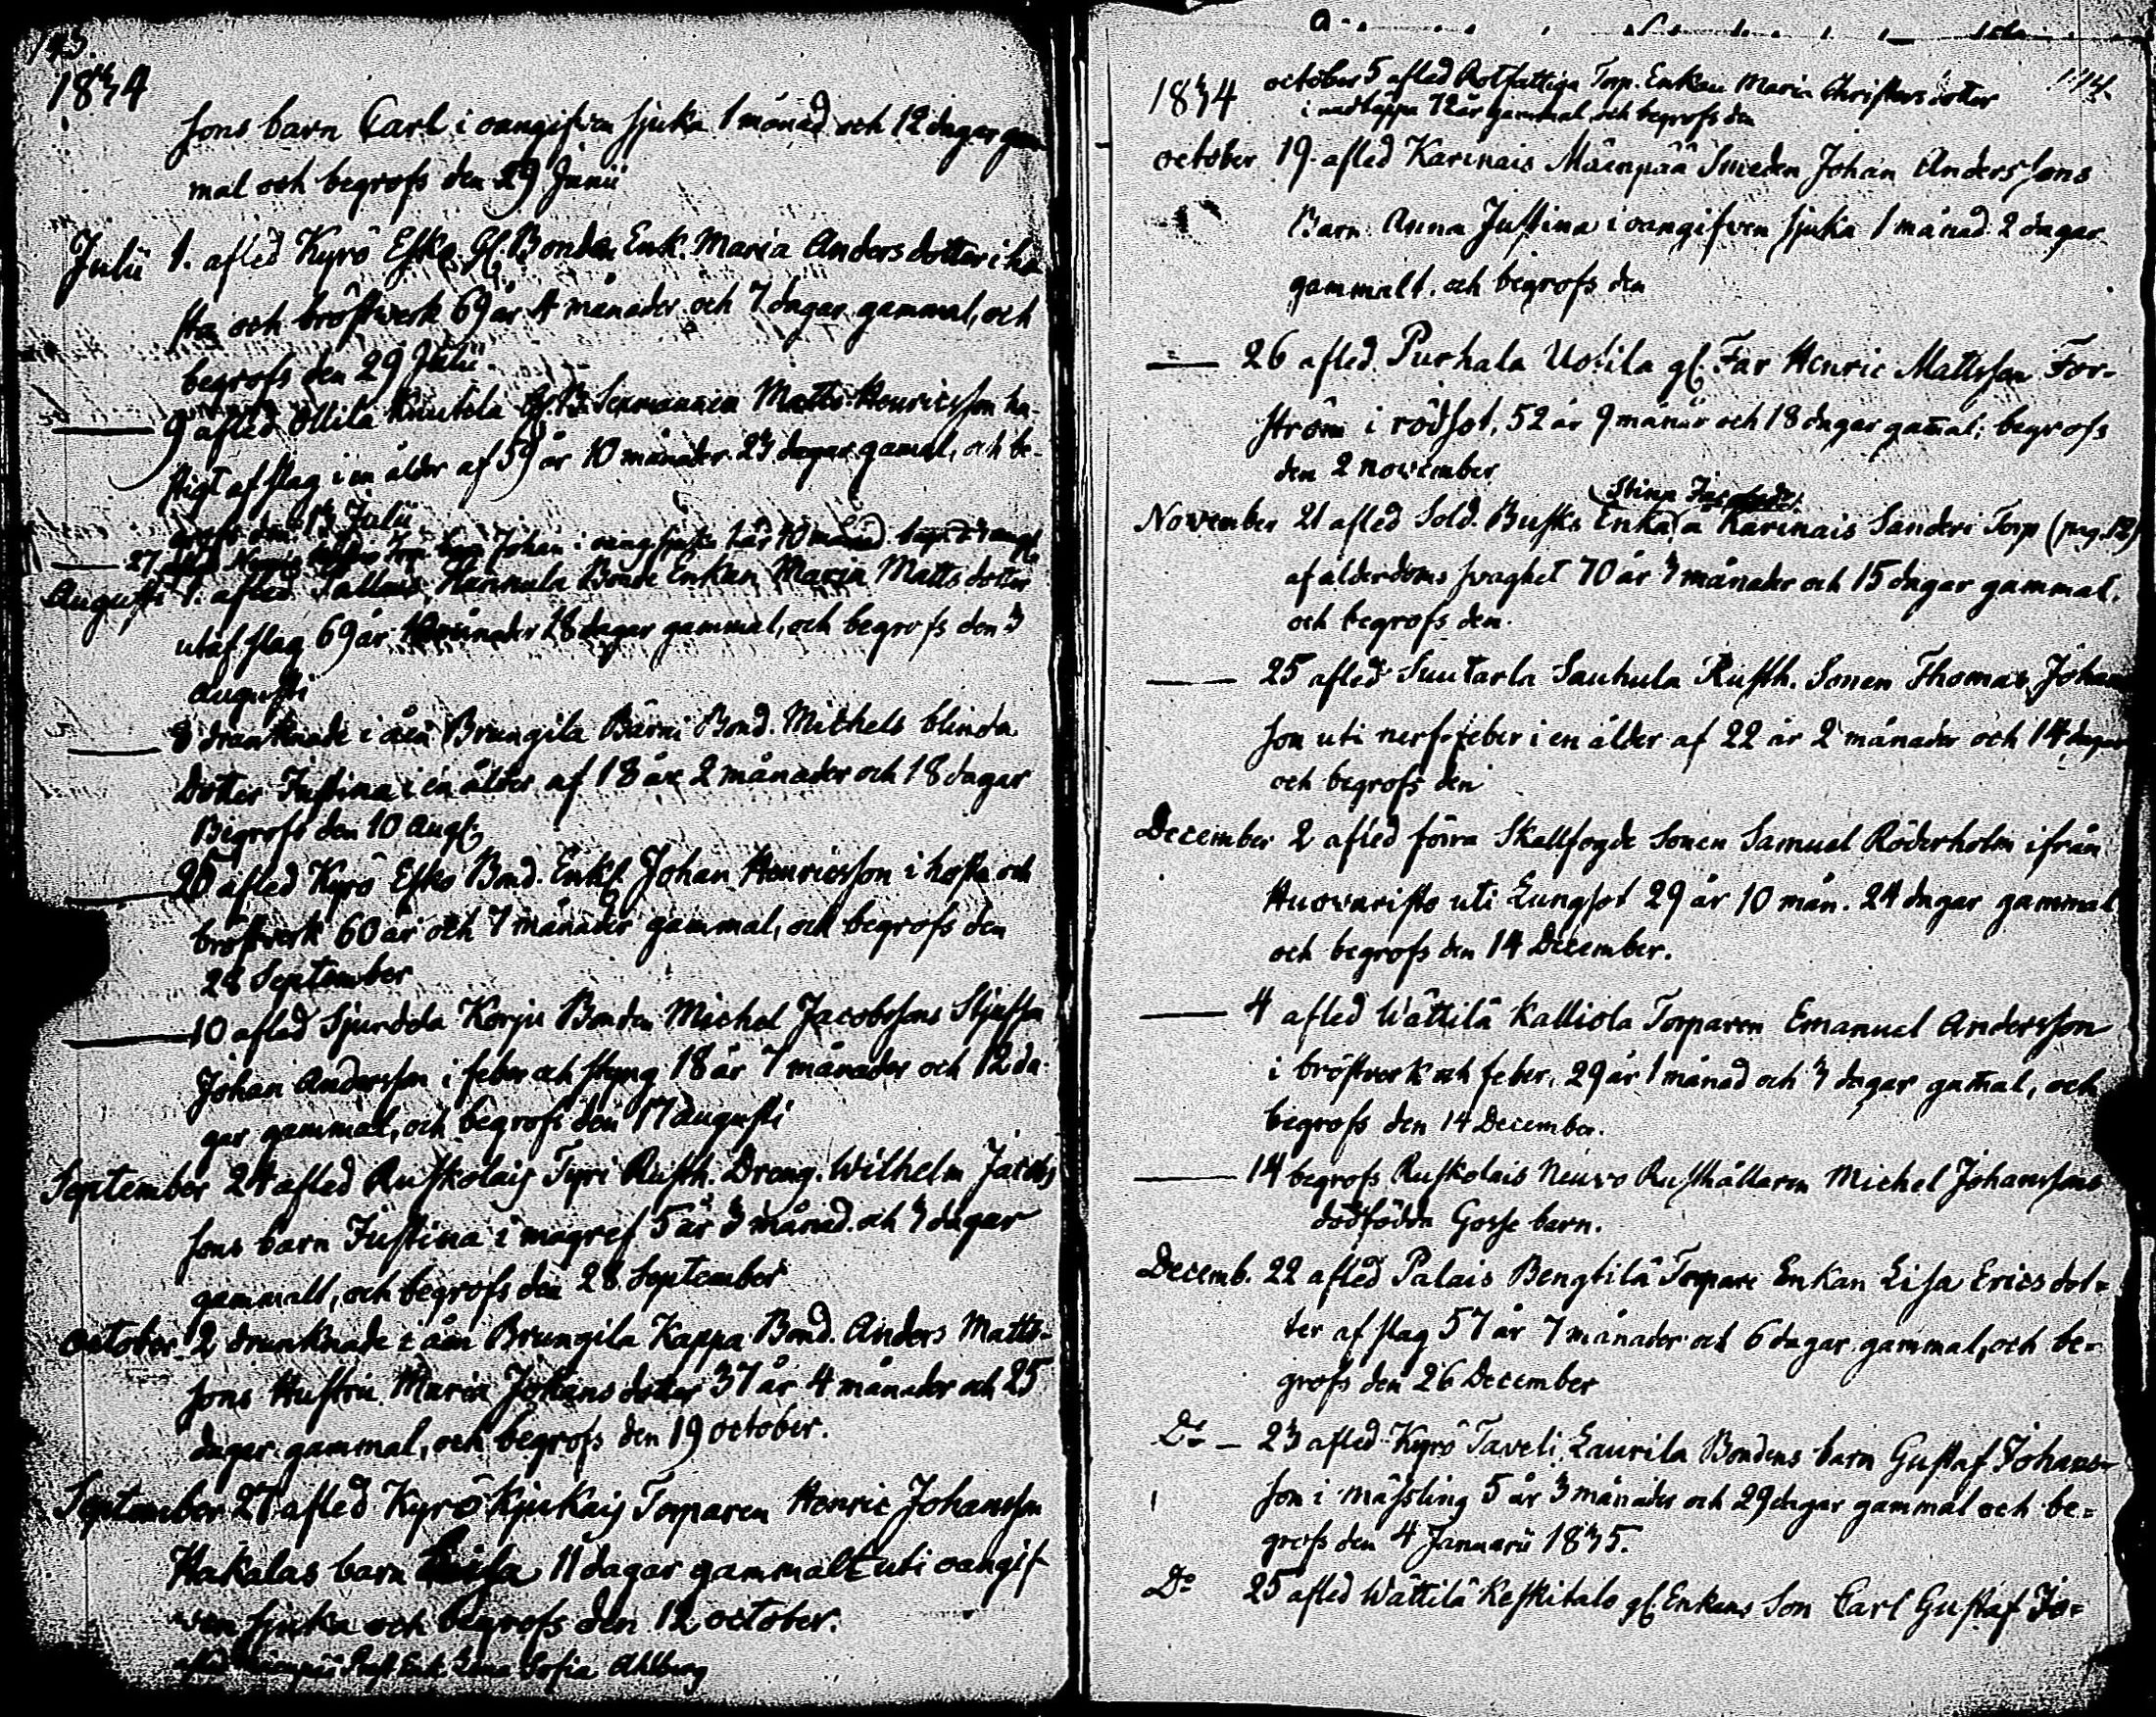 143.
1834
sons barn Carl i oangifven sjuka 1 månad och 12 dagar gam
mal och begrofs den 29 Junii
Julii 1. afled Kyrö Esko gl. Bonden Enk. Maria Anders dotter i ho
sta och bröstwerk 69 år 4 månader och 7 dagar gammal, och
begrofs den 29 Julii
9 afled Ollila Knutila Matts Henricsson ha-
stigt af slag i en ålder af 59 år 10 månader 23 dagar gamal, och be-
grofs den 13 Julii
27 afled Johan i
Augusti 1. afled Hannula Bonde Enkan Maria Matts dotter
utaf slag 69 år 10 månader 18 dagar gammal, och begrofs den 3
Augusti
8 drunknade i åen Brungila Bärni Bond. Michels blinda
Dotter Justina i en ålder af 18 åre 2 månader och 18 dagar
Begrofs den 10 Augt.
20 afled Kyrö Esko Bond. Enkl. Johan Henricsson i hosta och
bröstverk 60 år och 7 månader gammal, och begrofs den
28 September
10 afled Sjurdela Korju Bonden Michel Jacobssons Stjufson
Johan Andersson i feber och styng 18 år 7 månader och 12 da-
gar gammal, och begrofs den 17 augusti
September 24 afled Ruskolais Tyri Rusth. Dreng. Wilhelm Jacobs
sons barn Justina i magref 5 år 3 månad. och 3 dagar
gammalt, och begrofs den 28 September
October 2 drunknade i åen Brungila Kappa Bond. Anders Matts-
sons Hustru Maria Johans dotter 37 år 4 månader och 25
dagar gammal, och begrofs den 19 october.
September 27 afled Kyrö Kjukais Torparen Henric Johansson
Hakalas barn 11 dagar gammalt uti oangif
ven sjuka och begrofs den 12 october.
afled Sofia Ahlberg
1834 october 5 afled Rotfattiga Torp. Enkan Maria Christers dotter
144.
i 72 år gammal och begrofs den
october 19. afled Karinais Mäenpää Smeden Johan Anderssons
Barn Anna Justina i oangifven sjuka 1 månad 2 dagar
gammalt. och begrofs den
26 afled Purhala Uotila gl. Far Henric Mattsson For-
ström i rödsot, 52 år 9 månar och 18 dagar gamal; begrofs
den 2 november
Stina
November 21 afled Sold. Busks Enka a Karinais Sanderi Torp (pag. 12)
af ålderdoms svaghet 70 år 3 månader och 15 dagar gammal.
och begrofs den.
25 afled Suutarla Sauhula Rusth. Sonen Thomas Johan
son uti nerf-feber i en ålder af 22 år 2 månader och 14 dagar
och begrofs den
December 2 afled förra Skallfogde Sonen Samuel Röderholm ifrån
Huovaristo uti Lungsot 29 år 10 mån. 24 dagar gammal
och begrofs den 14 December.
4 afled Wättilä Kalliola Torparen Emanuel Andersson
i bröstverk och feber, 29 år 1 månad och 3 dagar gamal, och
begrofs den 14 December.
14 begrofs Ruskolais Neuvo Rusthållaren Michel Johanssons
dödfödda Gosse barn.
Decemb. 22 afled Palais Bengtilä Torpare Enkan Lisa Erics dot-
ter af slag 57 år 7 månader och 6 dagar gammal, och be-
grofs den 26 December
Do 23 afled Kyrö Taveli Laurila Bondens barn Gustaf Johans-
son i mässling 5 år 3 månader och 29 dagar gammal och be-
grofs den 4 Januarii 1835.
Do 25 afled Wättilä Keskitalo gl. Enkans Son Carl Gustaf Jo-